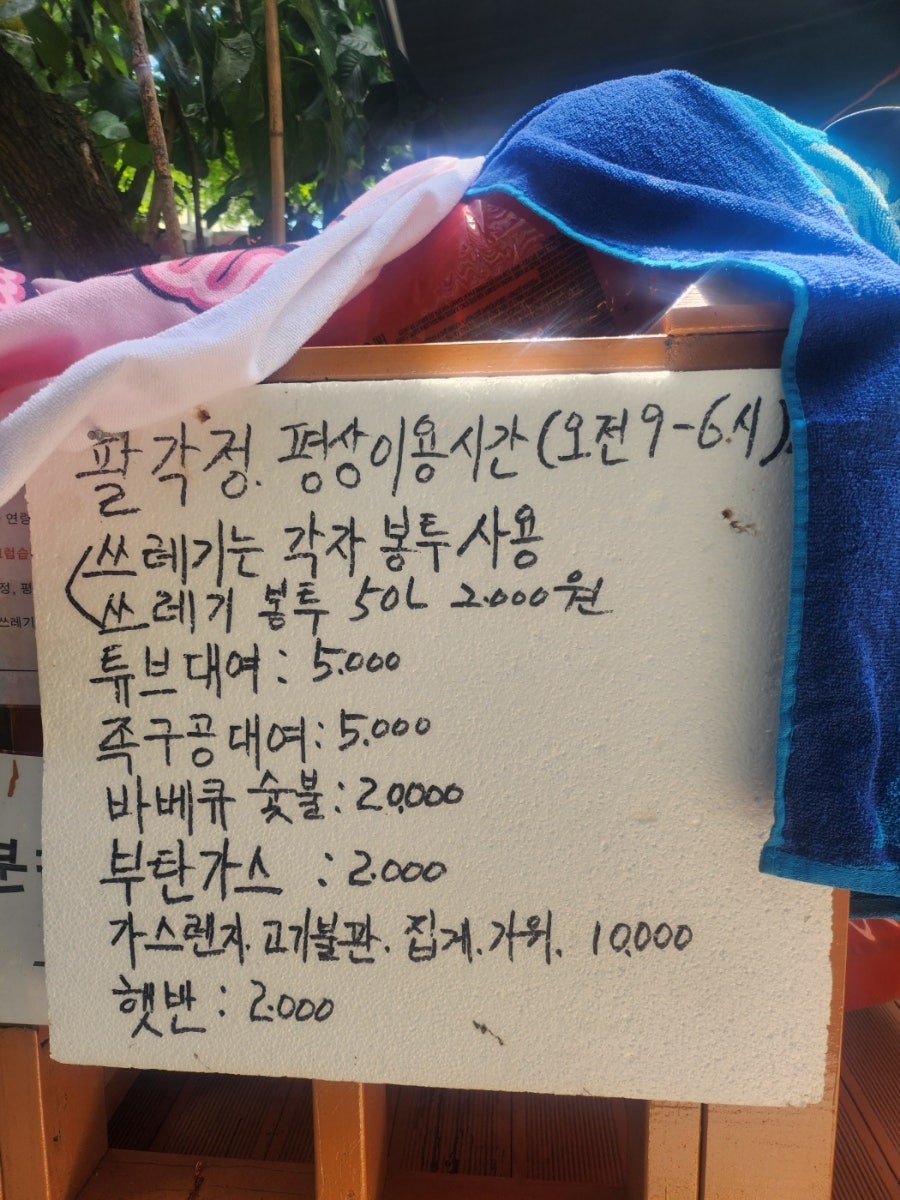 팔각정. 평상이용시간(오전9-6시)
쓰레기는 각자 봉투사용
쓰레기 봉투 50L 2.000원
튜브대여: 5.000
족구공대여: 5.000
바베큐 숯불: 20,000
부탄가스 : 2.000
가스렌지. 고기불판. 집게. 가위. 10,000
햇반: 2.000
연령
정, 평
쓰레기